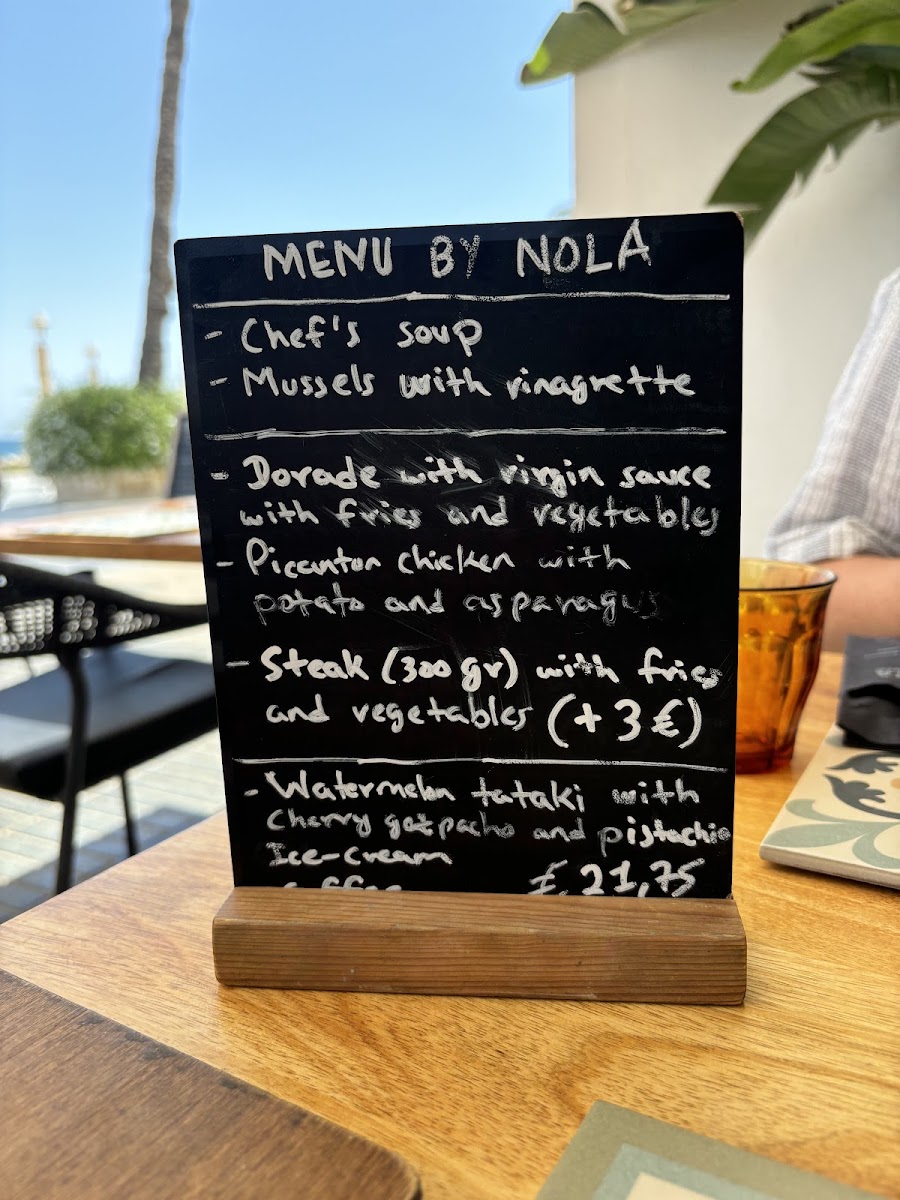 MENU BY NOLA
- Chef's soup
- Mussels with vinagrette
- Dorade with virgin sauce
with fries and vegetables
- Piccanton chicken with
potato and asparagus
- Steak (300 gr) with fries
and vegetables (+3€)
- Watermelon tataki with
Cherry gatpacho and pistachio
Ice-cream
coffee € 21,75